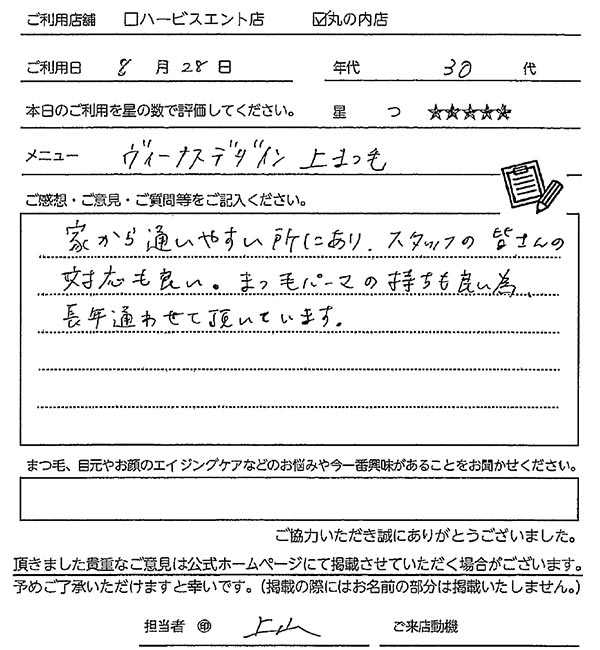 ご利用店舗 □ハービスエント店 ☑丸の内店
ご利用日 8 月 28 日 年代 30 代
本日のご利用を星の数で評価してください。 星 つ ★★★★★
メニュー ヴィーナスデザイン 上まつ毛
ご感想・ご意見・ご質問等をご記入ください。
家から通いやすい所にあり、スタッフの皆さんの
対応も良い。まつ毛パーマの持ちも良い為、
長年通わせて頂いています。
まつ毛、目元やお顔のエイジングケアなどのお悩みや今一番興味があることをお聞かせください。
ご協力いただき誠にありがとうございました。
頂きました貴重なご意見は公式ホームページにて掲載させていただく場合がございます。
予めご了承いただけますと幸いです。(掲載の際にはお名前の部分は掲載いたしません。)
担当者 ㊞ 上山 ご来店動機